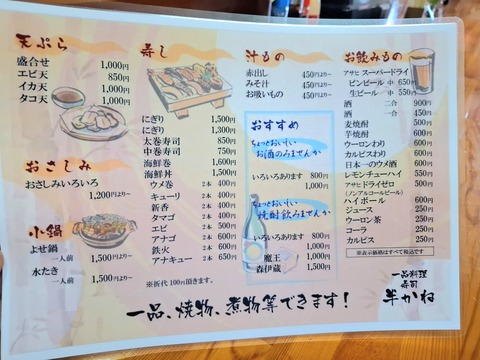 天ぷら
盛合せ 1,000円
エビ天 850円
イカ天 1,000円
タコ天 1,000円
おさしみ
おさしみいろいろ
1,200円より〜
小鍋
よせ鍋
一人前 1,500円より〜
水たき
一人前 1,500円より〜
寿し
にぎり 1,500円
にぎり 1,300円
太巻寿司 850円
中巻寿司 750円
海鮮巻 1,600円
海鮮丼 1,500円
ウメ巻 2本 400円
キューリ 2本 400円
新香 2本 400円
タマゴ 2本 400円
エビ 2本 600円
アナゴ 2本 600円
鉄火 2本 600円
アナキュー 2本 650円
※折代100円頂きます。
汁もの
赤出し 450円より〜
みそ汁 450円より〜
お吸いもの 450円より〜
おすすめ
ちょっとおいしい
お酒のみませんか
いろいろあります 800円
1,000円
ちょっとおいしい
焼酎飲みませんか
いろいろあります 800円
1,000円
魔王 1,000円
森伊蔵 1,500円
お飲みもの
アサヒ スーパードライ
ビンビール 中 650円
生ビール 中 550円
酒 二合 900円
酒 一合 450円
麦焼酎 500円
芋焼酎 600円
ウーロンわり 600円
カルピスわり 600円
日本一のウメ酒 600円
レモンチューハイ 550円
アサヒドライゼロ 550円
(ノンアルコールビール)
ハイボール 600円
ジュース 250円
ウーロン茶 250円
コーラ 250円
カルピス 250円
※表示価格はすべて税込です
一品、焼物、煮物等できます！
一品料理
寿司
半かね